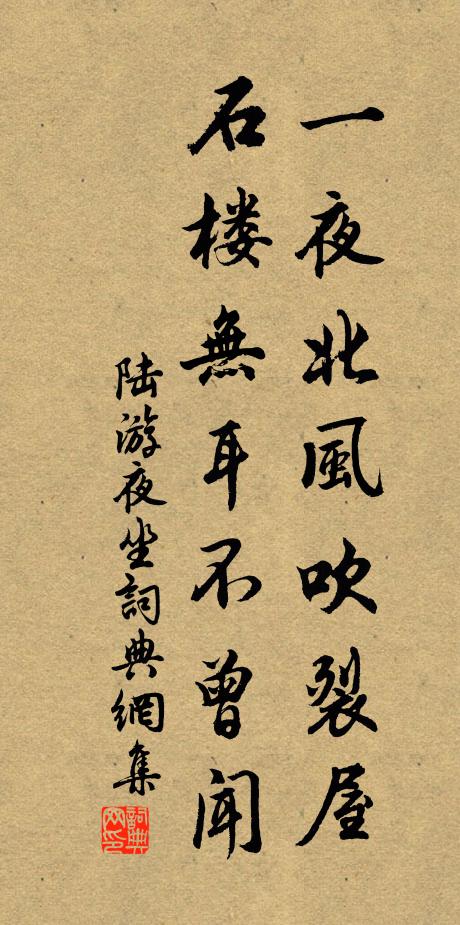 一夜北風吹裂屋
石楼無耳不曾聞
陆游夜坐詞典網集
詞典网印